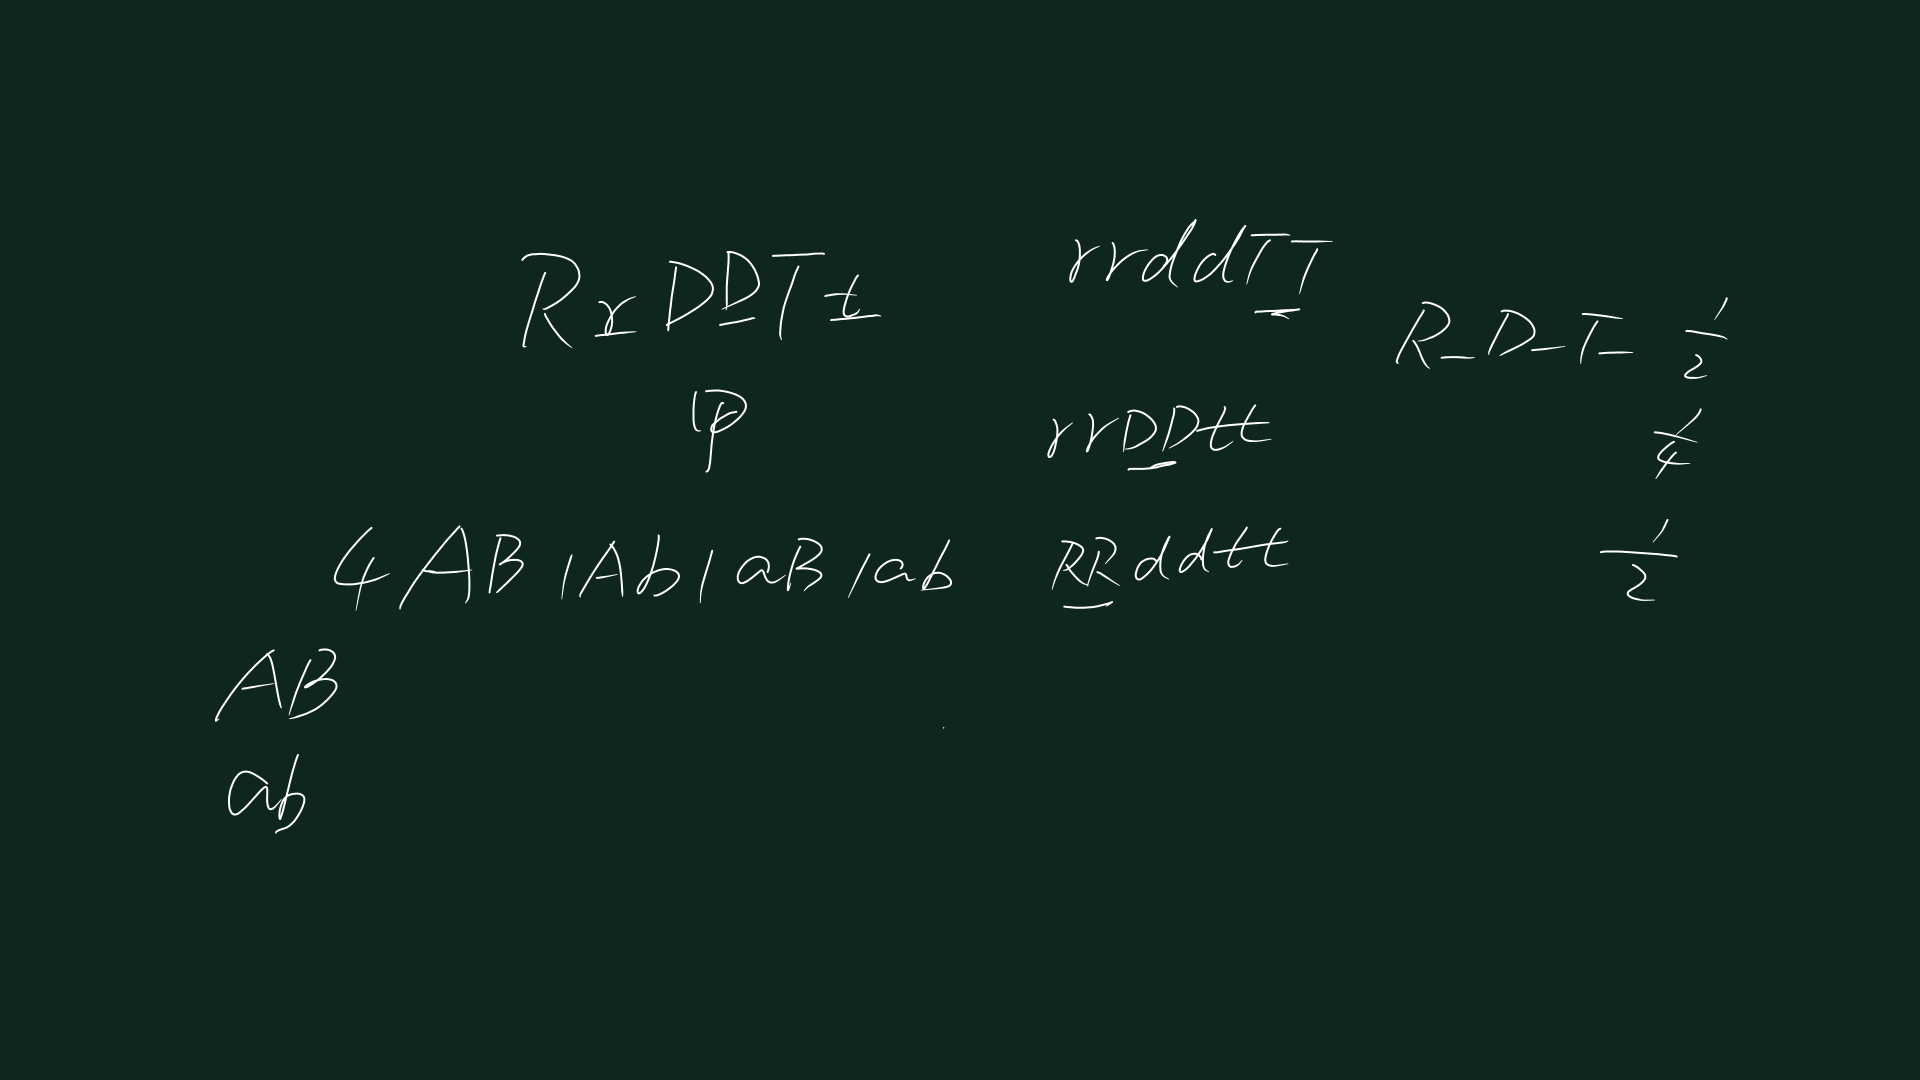 RrDDTt
rrddTT
R_D_T_ 1/2
rrDDtt
1/4
4AB 1Ab 1aB 1ab
RRddtt
1/2
AB
ab